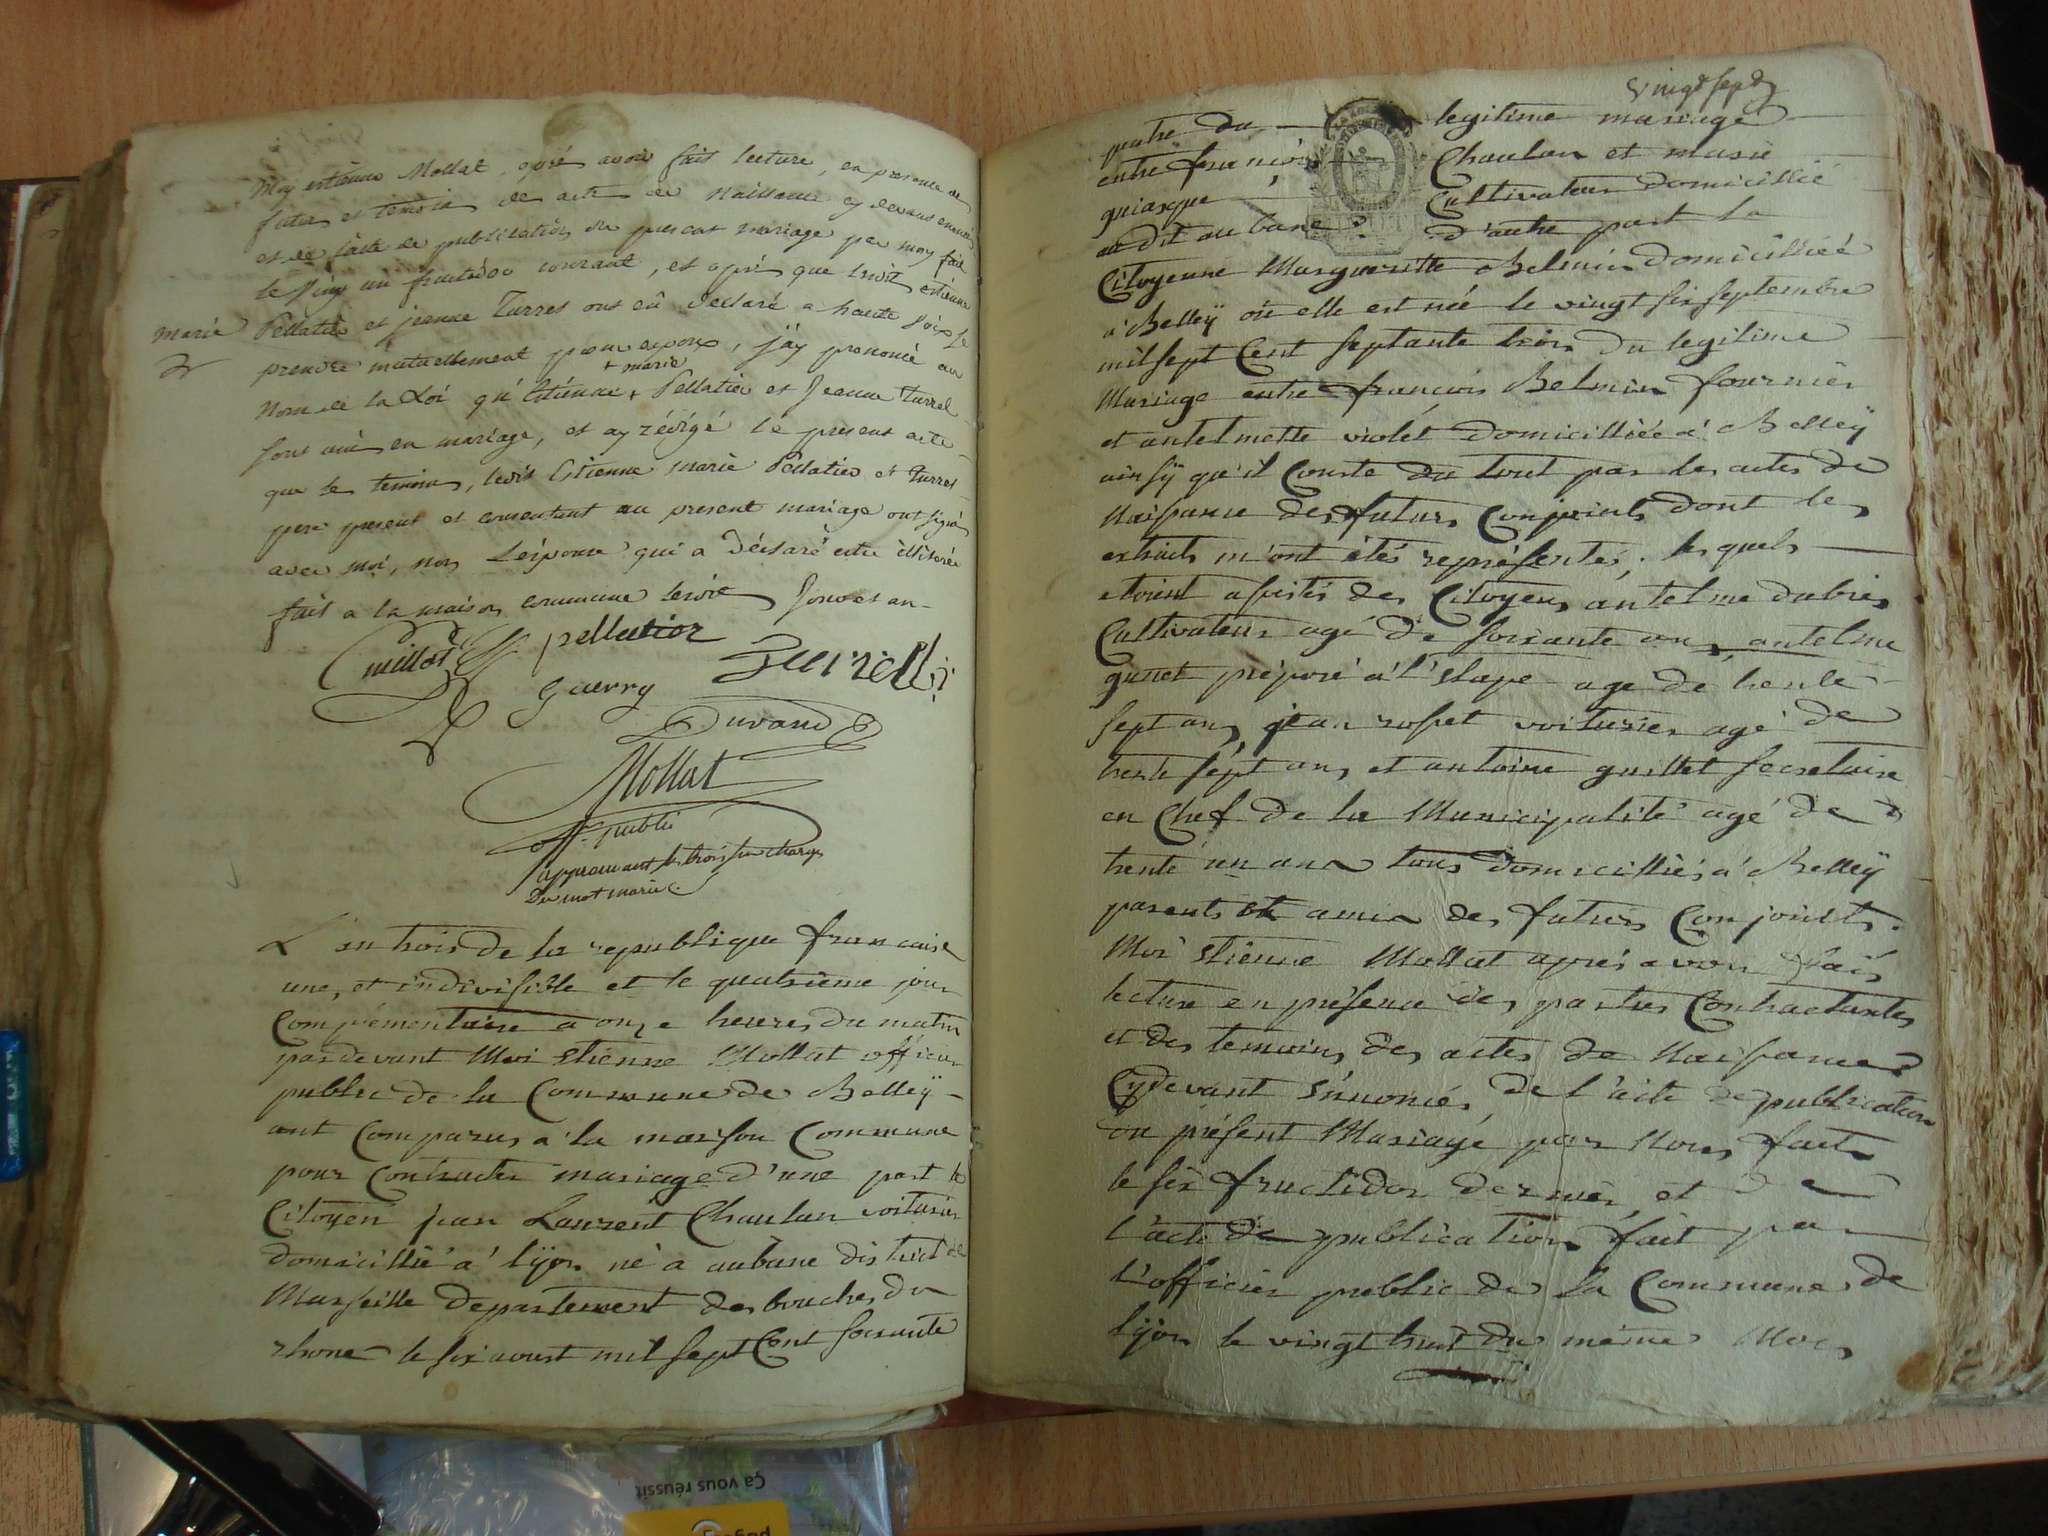 Moy estienne Mollat, apré avoir fait lecture, en presence des
futurs et temoins des acte de Naissance cy devant enoncés
et de l'acte de publication du present mariage par moy fait
le vingt un fructidor courant, et aprés que lesdits estienne
marie Pellatier et jeanne Turrel ont eû declaré a haute voix se
prendre mutuellement pour epoux, j'ay prononcé au
+ marie
nom de la Loi qu'Estienne + Pellatier et Jeanne Turrel
sont unis en mariage, et ay rédigé le present acte
que les temoins, lesdits Estienne marie Pellatier et Turrel
pere present et consentent au present mariage ont signés
avec moi, non L'épouse qui a déclaré estre illiterée
fait a la maison commune lesdits jour et an-
millat pellatier
Guerry Turrel
Durand
Mollat
off. public
approuvant les trois surcharges
Du mot marie.
L'an trois de la republique francaise
une, et indivisible et le quatrieme jour
Complémentaire a onze heures du matin
pardevant Moi Etienne Mollat officier
public de la Commune de Belleÿ
ont Comparus a la maison Commune
pour Contracter mariage d'une part le
Citoyen jean Laurent Chaulan voiturier
domicillié à lÿon né a aubane district de
Marseille departement des bouches du
rhone le six aoust mil sept Cent soixante
vingt sept
quatre du legitime mariage
entre françois Chaulan et marie
Cultivateur domicillié
au dit aubane d'autre part la
Citoyenne Margueritte Belmin domicilliée
à Belleÿ où elle est née le vingt six septembre
mil sept Cent septante trois du legitime
Mariage entre françois Belmin fournier
et antelmette violet domicilliée à Belleÿ
ainsÿ qu'il Conste du tout par les actes de
Naissance des futurs Conjoints dont les
extraits m'ont étés représentés, lesquels
etoient assistés des Citoyens antelme dubies
Cultivateur agé de soixante ans, antelme
guttet préposé à l'etape agé de trente
sept ans, jean rosset voiturier agé de
trente sept ans, et antoine guillet secretaire
en Chef de la Municipalité agé de
trente un ans tous domicilliés à Belleÿ
parents et amis des futurs Conjoints.
Moi Etienne Mollat aprés avoir fait
lecture en présence des parties Contractantes
et des temoins des actes de Naissances
Cydevant énnoncés, de l'acte de publication
du présent Mariage par Nous fait
le six fructidor dernier, et de
l'acte de publication fait par
l'officier public de la Commune de
lÿon le vingt huit du même Mois